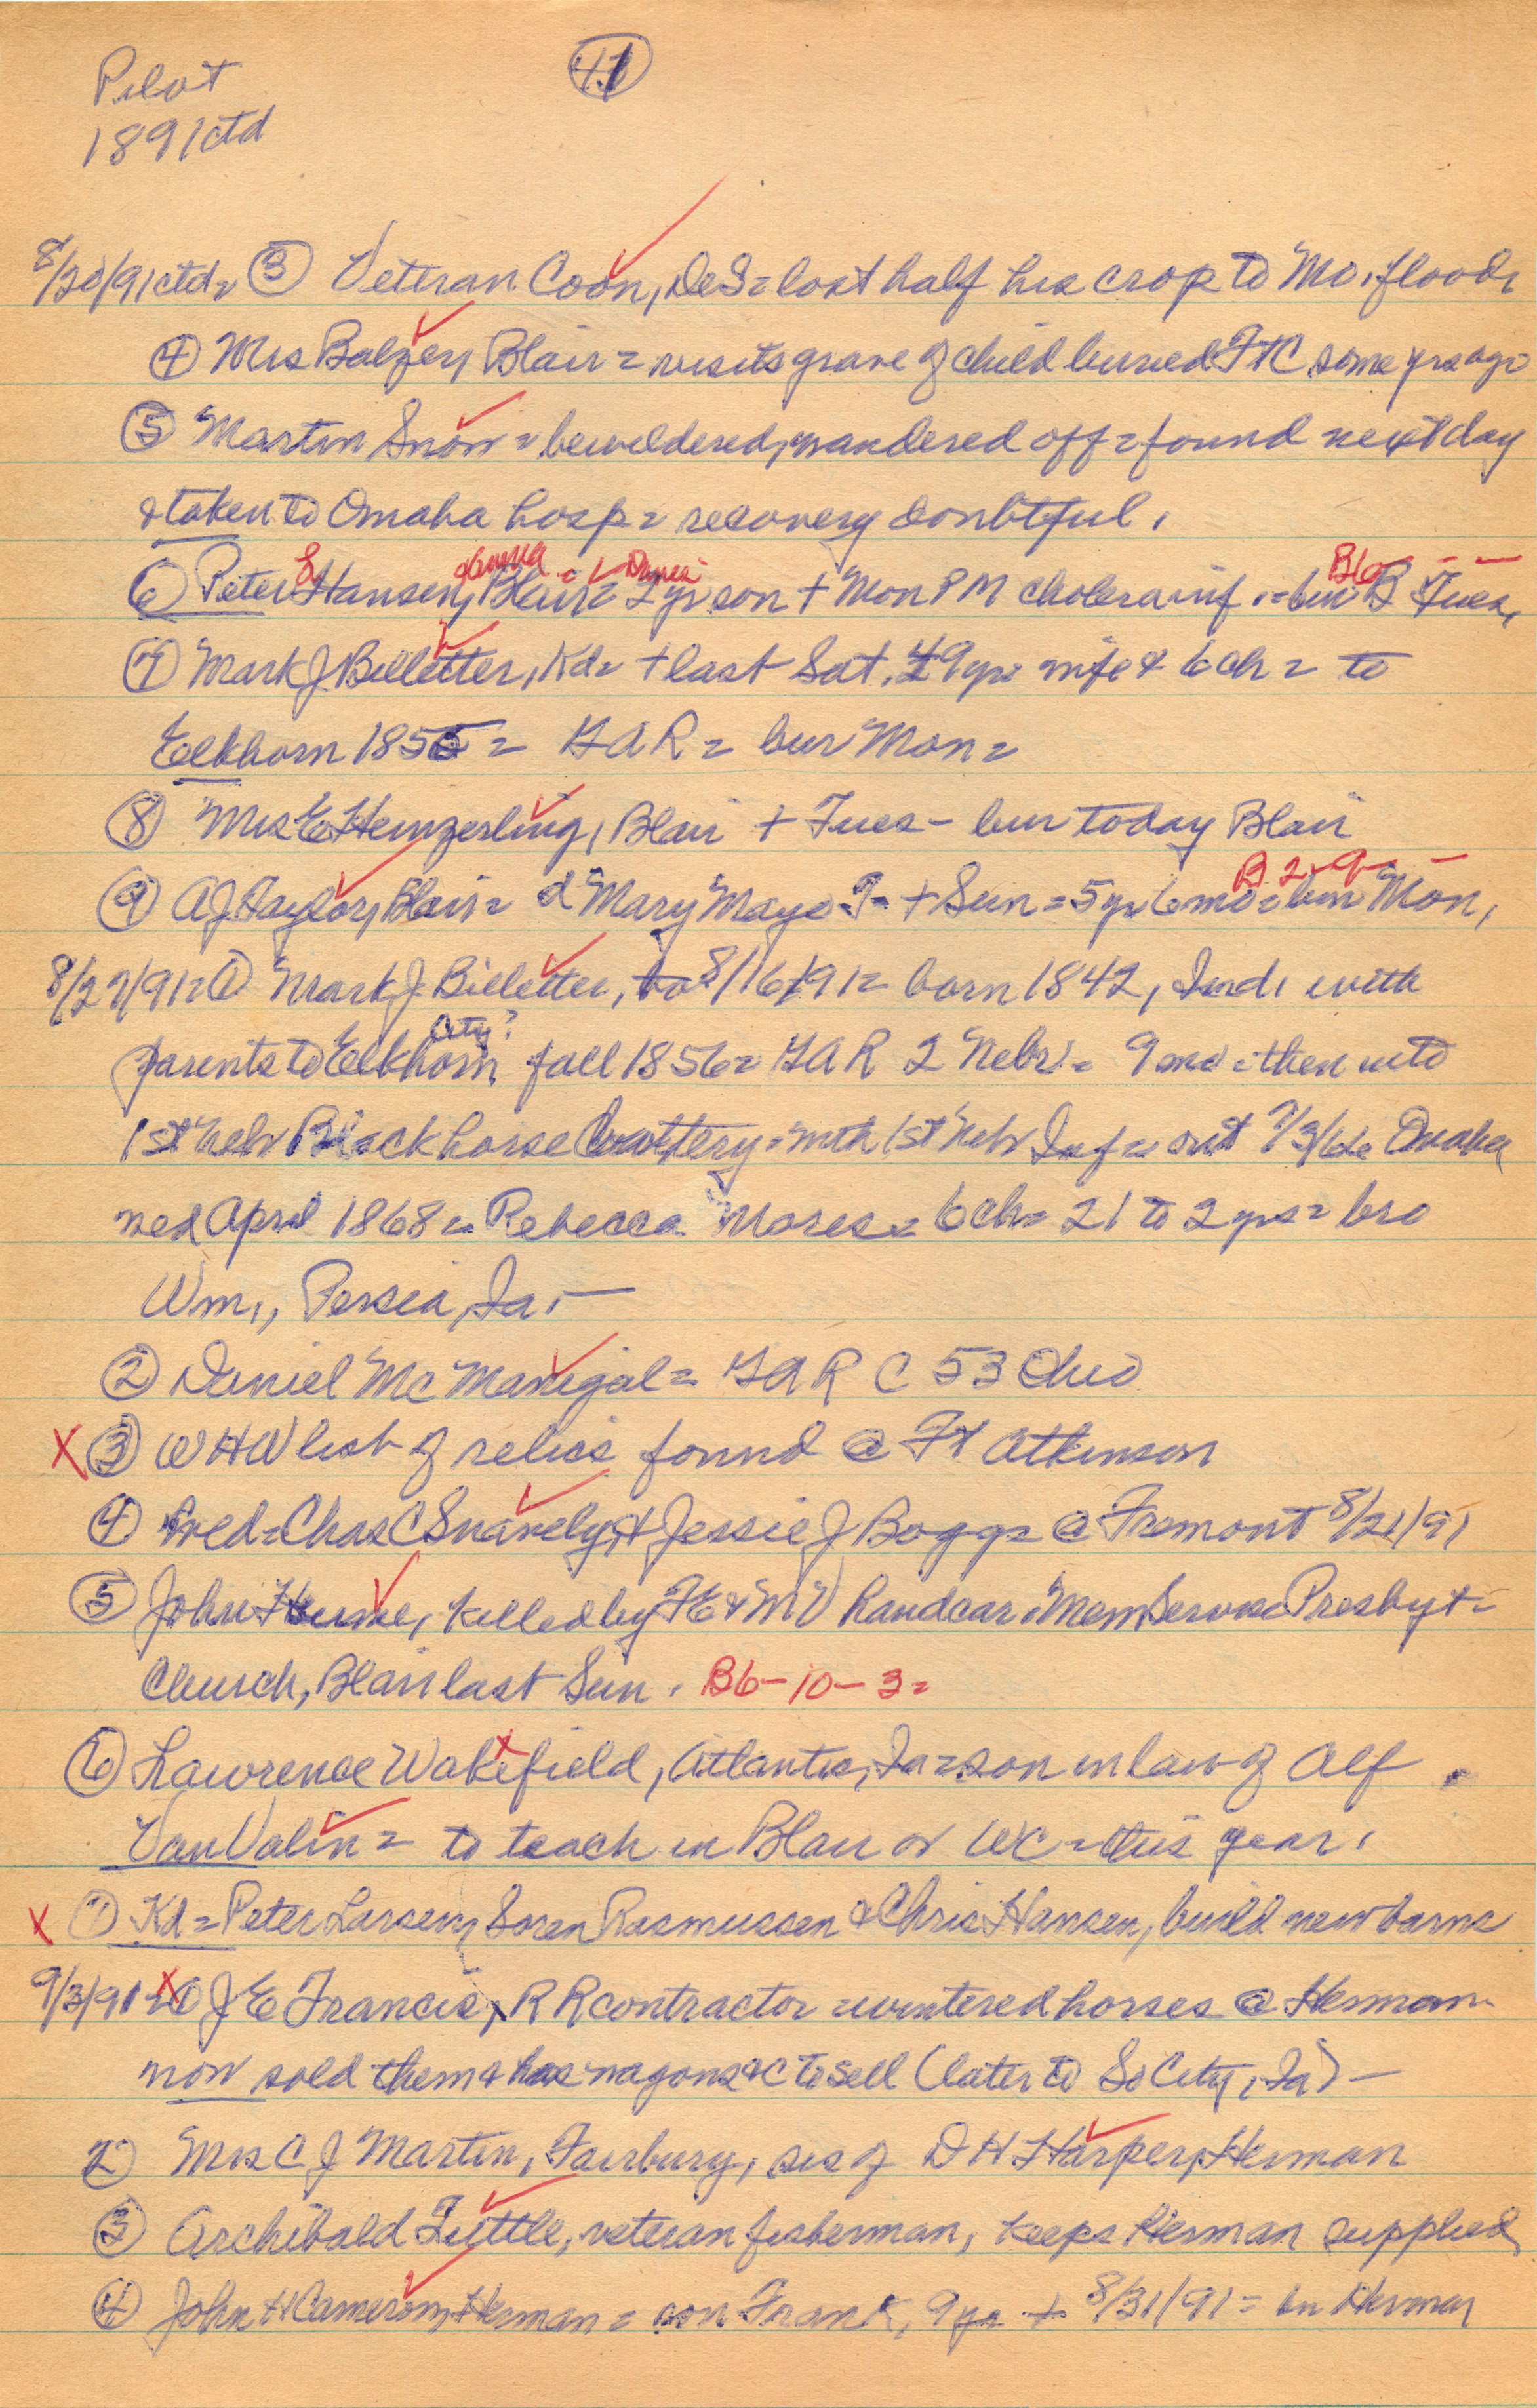 Pilot
41
1891 ctd
8/20/91 ctd = ③ Vetteran Coon, DeS = lost half his crop to Mo. flood,
④ Mrs Balzer, Blair = visits grave of child buried FtC some yrs ago
⑤ Martin Snow = bewildered, wandered off = found next day
& taken to Omaha hosp = recovery doubtful.
⑥ Peter S Hansen, Blair = 2 yr son + Mon PM cholera inf. = bur B Tues,
⑦ Mark J Billetter, Kd = + last Sat. 49 yr = wife & 6 ch = to
Elkhorn 1856 = GAR = bur Mon =
⑧ Mrs E Hemzerling, Blair + Tues - bur today Blair
B 2-9-
⑨ A J Taylor, Blair = d Mary Maye T = + Sun = 5 yr 6 mo = bur Mon,
8/27/91 = ① Mark J Billetter, 8/16/91 = born 1842, Ind, with
City?
parents to Elkhorn fall 1856 = GAR 2 Nebr = 9 mo = then into
1st Nebr Black horse Battery = with 1st Nebr Inf = out 7/3/66 Omaha
wed April 1868 = Rebecca Mores = 6 ch = 21 to 2 yrs = bro
Wm., Persia, Ia. —
② Daniel McManigal = GAR C 53 Ohio
X ③ WHW list of relics found @ Ft Atkinson
④ Wed = Chas C Snavely & Jessie J Boggs @ Fremont 8/21/91
⑤ John Hume, killed by FE & MV handcar = Mem Service Presbyt =
Church, Blair last Sun. B6-10-3=
⑥ Lawrence Wakefield, Atlantic, Ia = son in law of Alf
VanValin = to teach in Blair or WC = this year.
X ⑦ Kd = Peter Larsen, Soren Rasmussen & Chris Hansen, build new barns
9/3/91 = X ① J E Francis, RR contractor = wintered horses @ Herman
now sold them & has wagons &c to sell (later to So City, Ia) —
② Mrs C J Martin, Fairbury, sis of D H Harper, Herman
③ Archibald Tuttle, veteran fisherman, keeps Herman supplied,
④ John H Cameron, Herman = son Frank, 9 yr + 8/31/91 = bu Herman